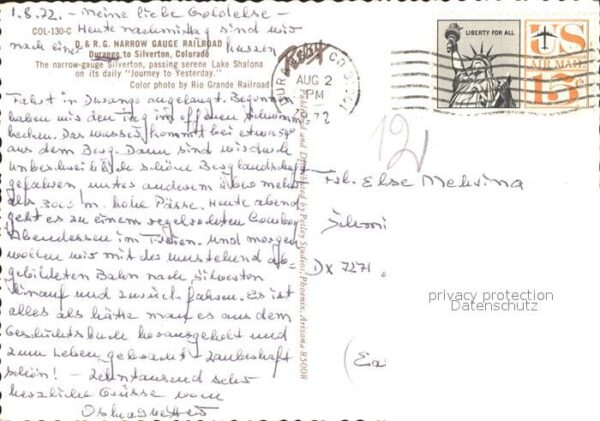 1.8.72. - Meine liebe Goldelse -
COL-130-C Heute nachmittag sind wir
nach
D. & R. G. NARROW GAUGE RAILROAD
Durango to Silverton, Colorado
The narrow-gauge Silverton, passing serene Lake Shalona
on its daily "Journey to Yesterday."
Color photo by Rio Grande Railroad
Fahrt in Durango angelangt. Begonnen
haben wir den Tag im offenen Schwimm-
becken. Das Wasser kommt bei etwa 54°
aus dem Berg. Dann sind wir durch
unbeschreiblich schöne Berglandschaft
gefahren, unter anderem über mehr
als 3000 m. hohe Pässe. Heute abend
geht es zu einem regelrechten Cowboy
Abendessen im Freien. Und morgen
wollen wir mit der umstehend ab-
gebildeten Bahn nach Silverton
hinauf und zurück fahren. Es ist
alles als hätte man es aus dem
Geschichtsbuch herausgeholt und
zum Leben gebracht - zauberhaft
schön! - Zehntausend sehr
herzliche Grüsse vom
Published and Distributed by Petley Studios, Phoenix, Arizona 85008
DURANGO, COLO.
AUG 2
PM
1972
LIBERTY FOR ALL
US
AIR MAIL
13c
12
Frl. Else
D x 7271
privacy protection
Datenschutz
(Ea